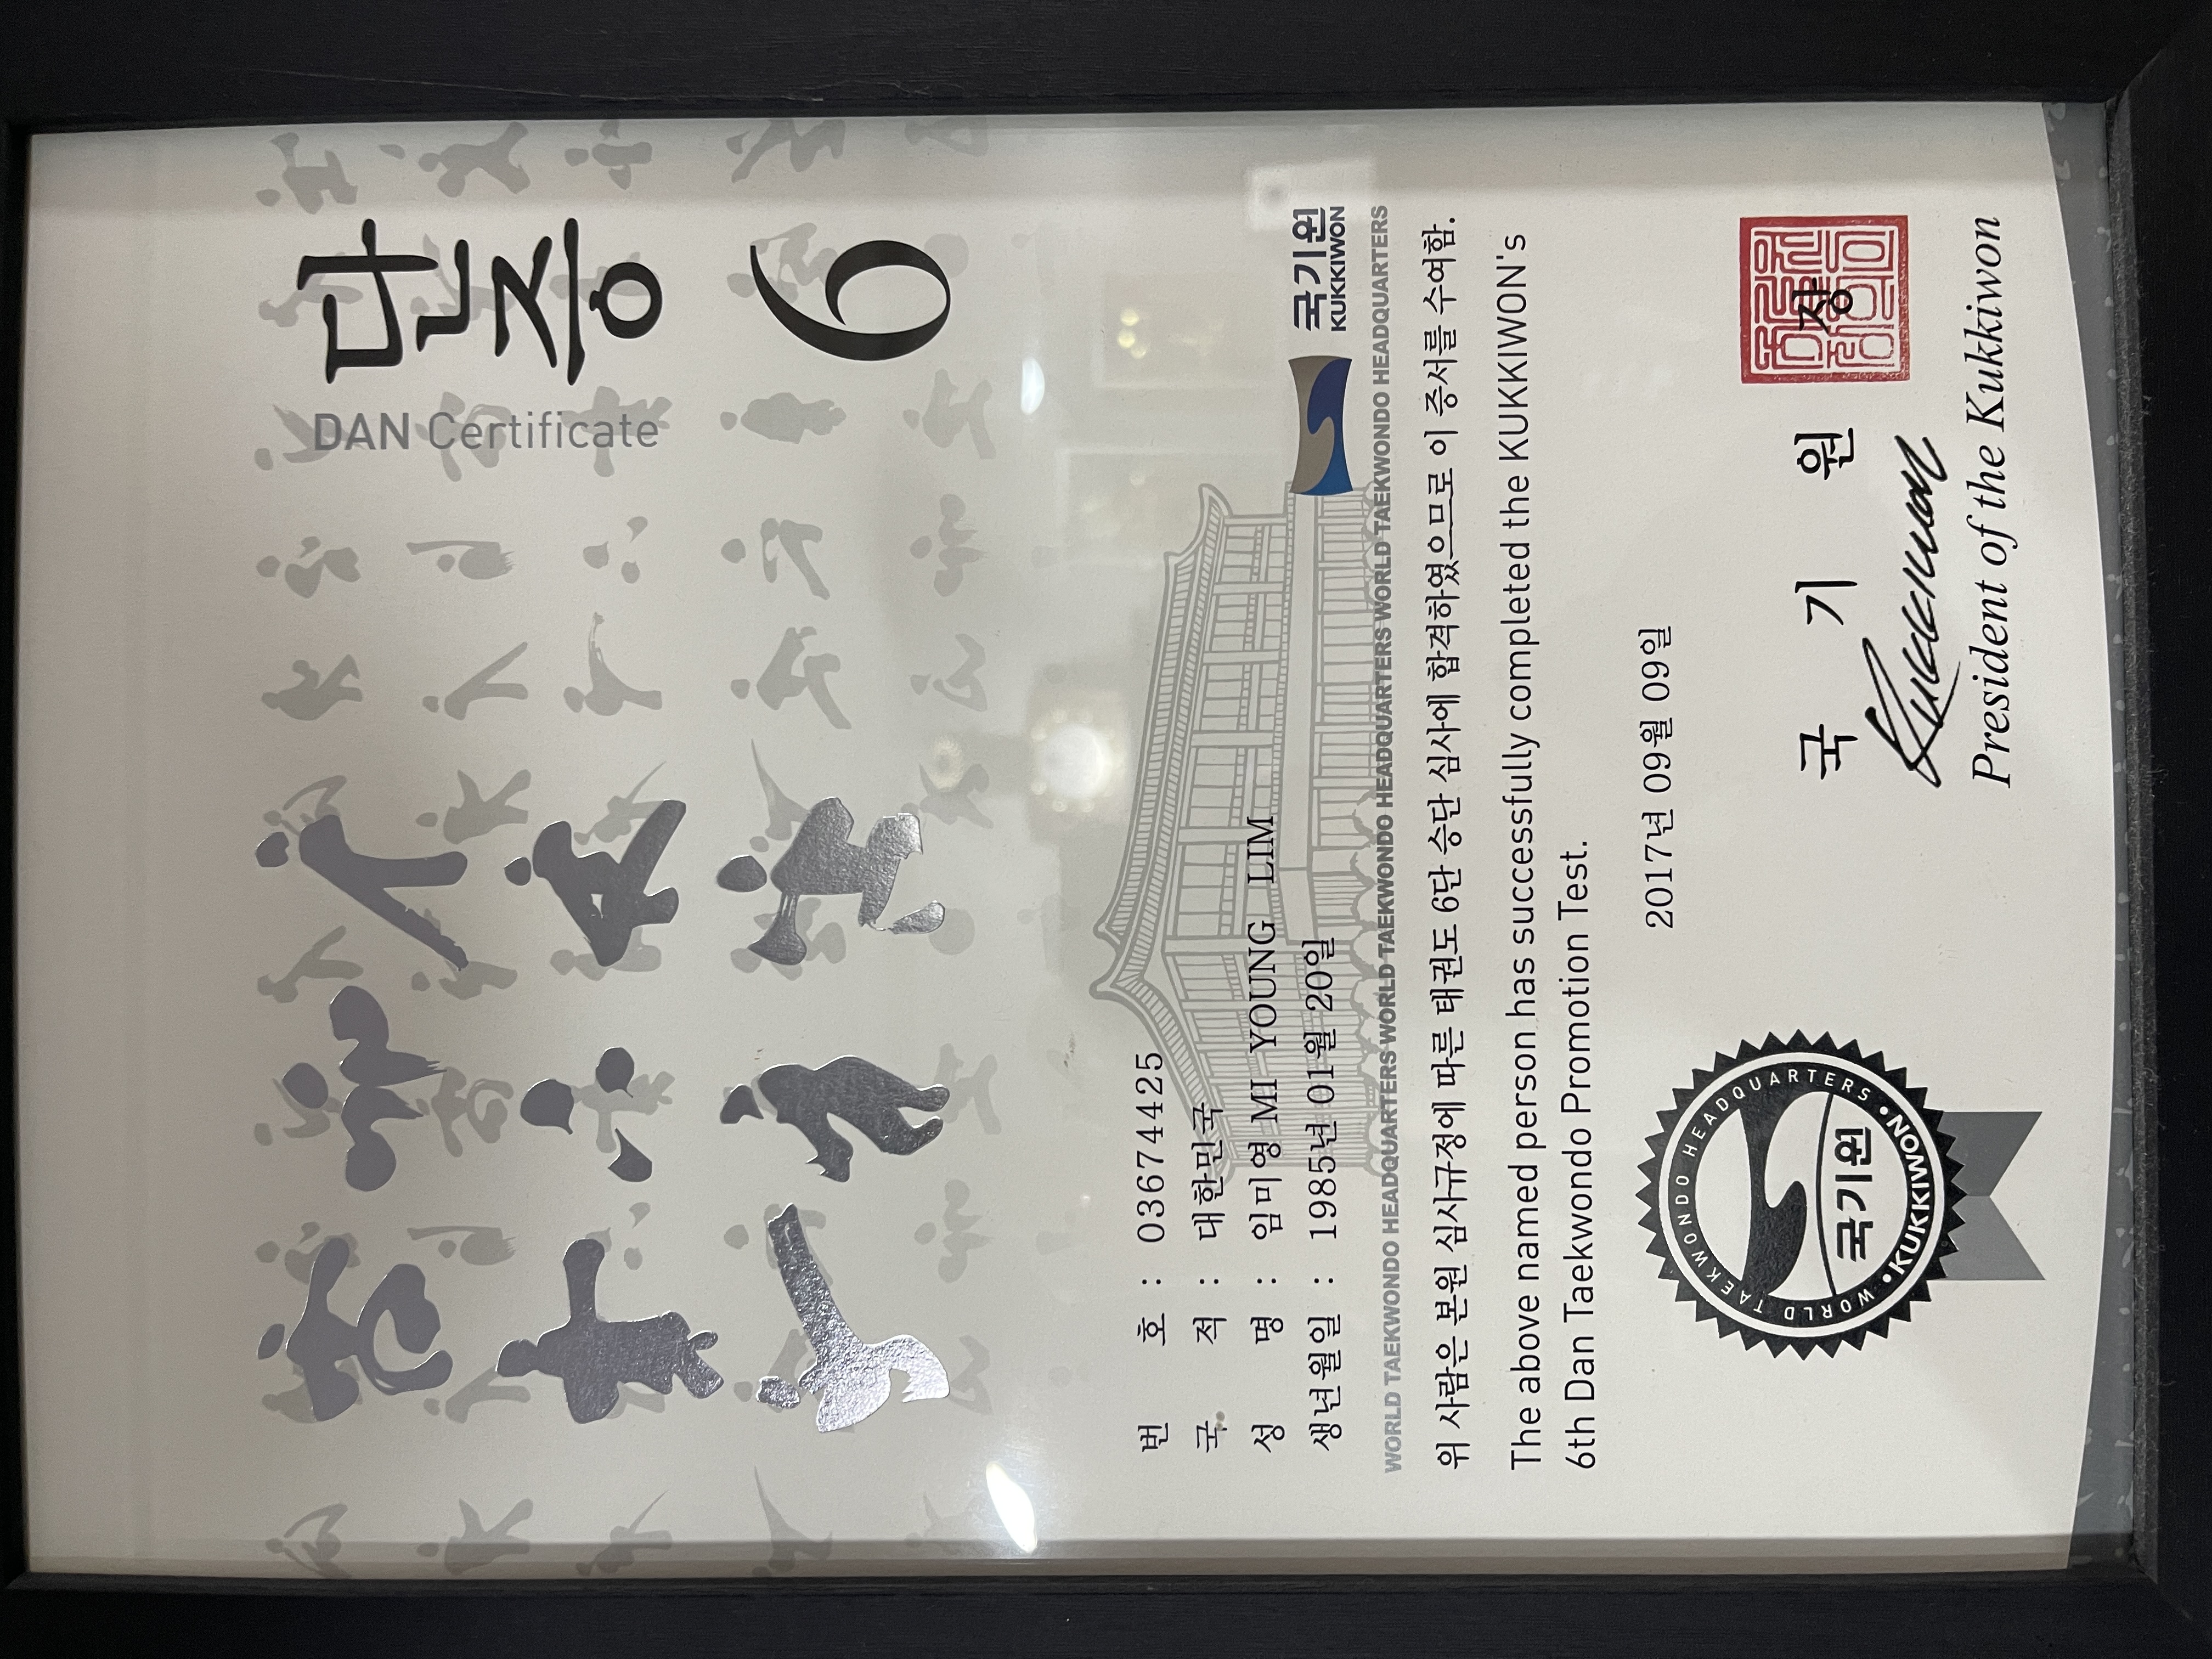 단증
DAN Certificate
6
번 호 : 03674425
국 적 : 대한민국
성 명 : 임미영 MI YOUNG LIM
생년월일 : 1985년 01월 20일
국기원
KUKKIWON
WORLD TAEKWONDO HEADQUARTERS WORLD TAEKWONDO HEADQUARTERS WORLD TAEKWONDO HEADQUARTERS WORLD TAEKWONDO HEADQUARTERS WORLD TAEKWONDO HEADQUARTERS
위 사람은 본원 심사규정에 따른 태권도 6단 승단 심사에 합격하였으므로 이 증서를 수여함.
The above named person has successfully completed the KUKKIWON's
6th Dan Taekwondo Promotion Test.
2017년 09월 09일
WORLD TAEKWONDO HEADQUARTERS
국기원
•KUKKIWON•
국 기 원 장
President of the Kukkiwon